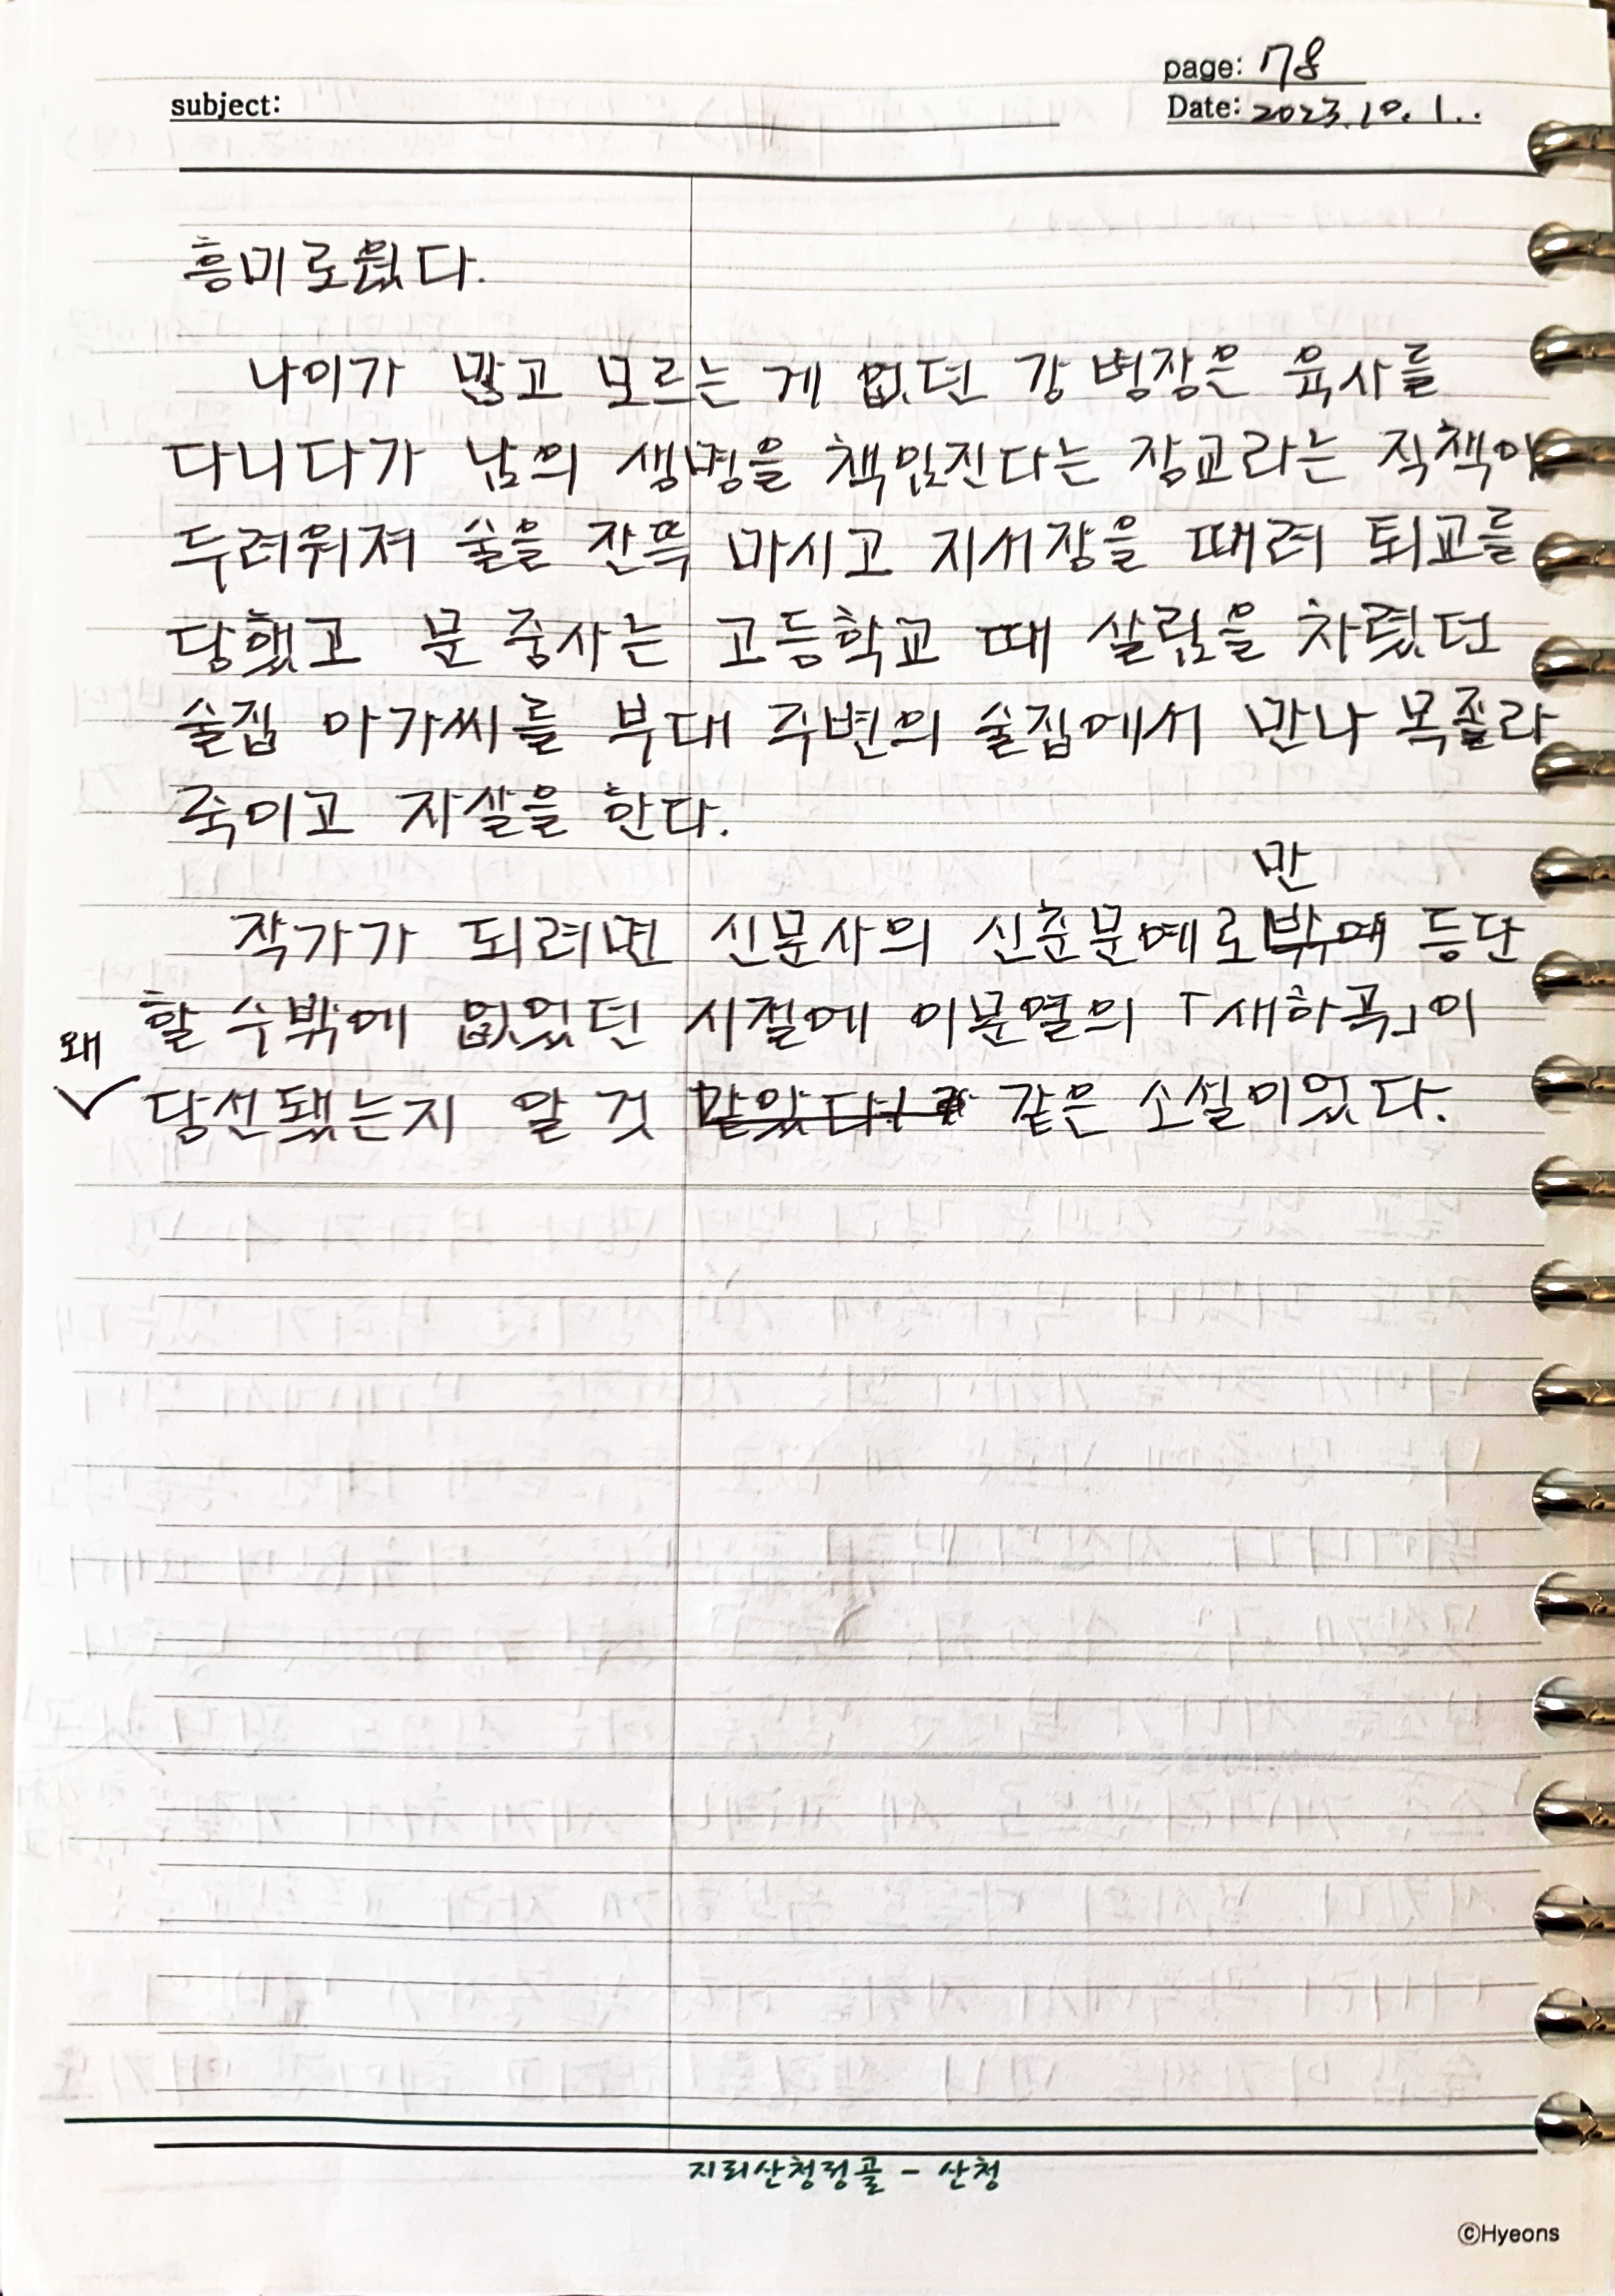 page: 178
subject:
Date: 2023.10.1..
흥미로웠다.
나이가 많고 모르는 게 없던 강 병장은 육사를
다니다가 남의 생명을 책임진다는 장교라는 직책이
두려워져 술을 잔뜩 마시고 지서장을 때려 퇴교를
당했고 문 중사는 고등학교 때 살림을 차렸던
술집 아가씨를 부대 주변의 술집에서 만나 목졸라
죽이고 자살을 한다.
만
작가가 되려면 신문사의 신춘문예로밖에 등단
할 수밖에 없었던 시절에 이문열의 「새하곡」이
왜
당선됐는지 알 것 같았다. 같은 소설이었다.
지리산청정골 - 산청
©Hyeons